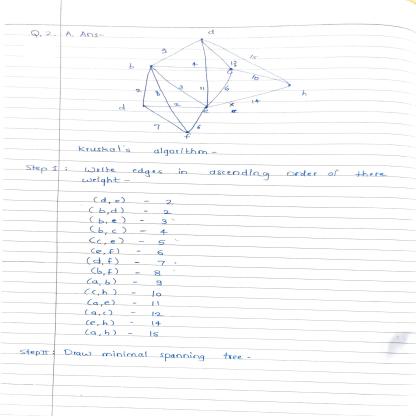 Q. 2. A. Ans-
d
9
15
b
4
13
10
h
3
11
6
14
2
8
2
d
e
7
6
f
Kruskal's algorithm -
Step I : Write edges in ascending order of there
weight -
(d,e) - 2
(b,d) - 2
(b,e) - 3
(b,c) - 4
(c,e) - 5
(e,f) - 6
(d,f) - 7
(b,f) - 8
(a,b) - 9
(c,h) - 10
(a,e) - 11
(a,c) - 12
(e,h) - 14
(a,h) - 15
Step II : Draw minimal spanning tree -